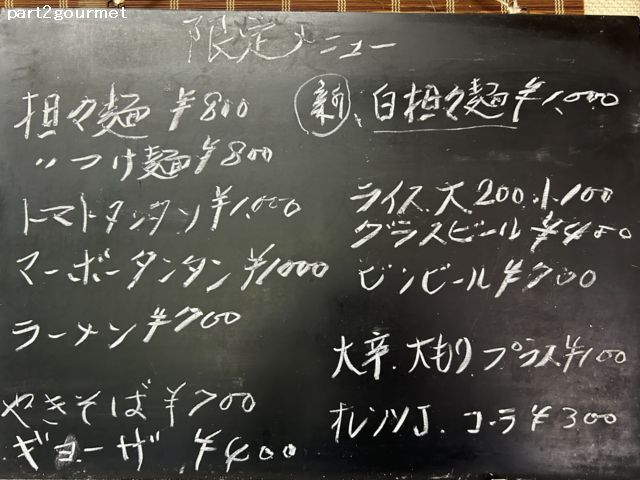 part2gourmet
限定メニュー
担々麺 ¥800
〃つけ麺¥800
トマトタンタン¥1,000
マーボータンタン¥1000
ラーメン¥700
やきそば¥700
ギョーザ ¥400
新、白担々麺¥1,000
ライス、大200.小100
グラスビール ¥400
ビンビール¥700
大辛.大もりプラス¥100
オレンジJ.コーラ¥300